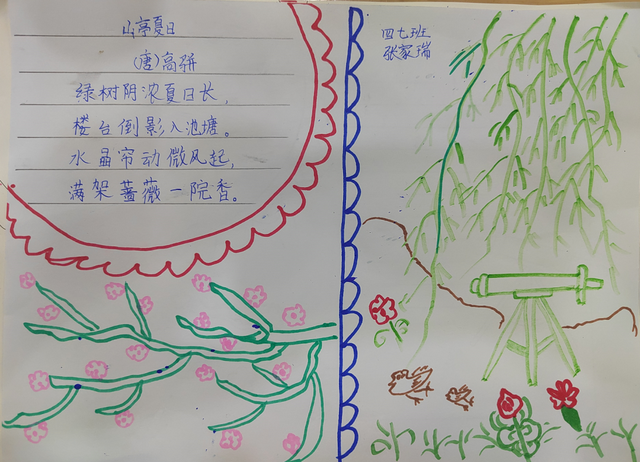 山亭夏日
(唐)高骈
绿树阴浓夏日长,
楼台倒影入池塘。
水晶帘动微风起,
满架蔷薇一院香。
四七班
张家瑞